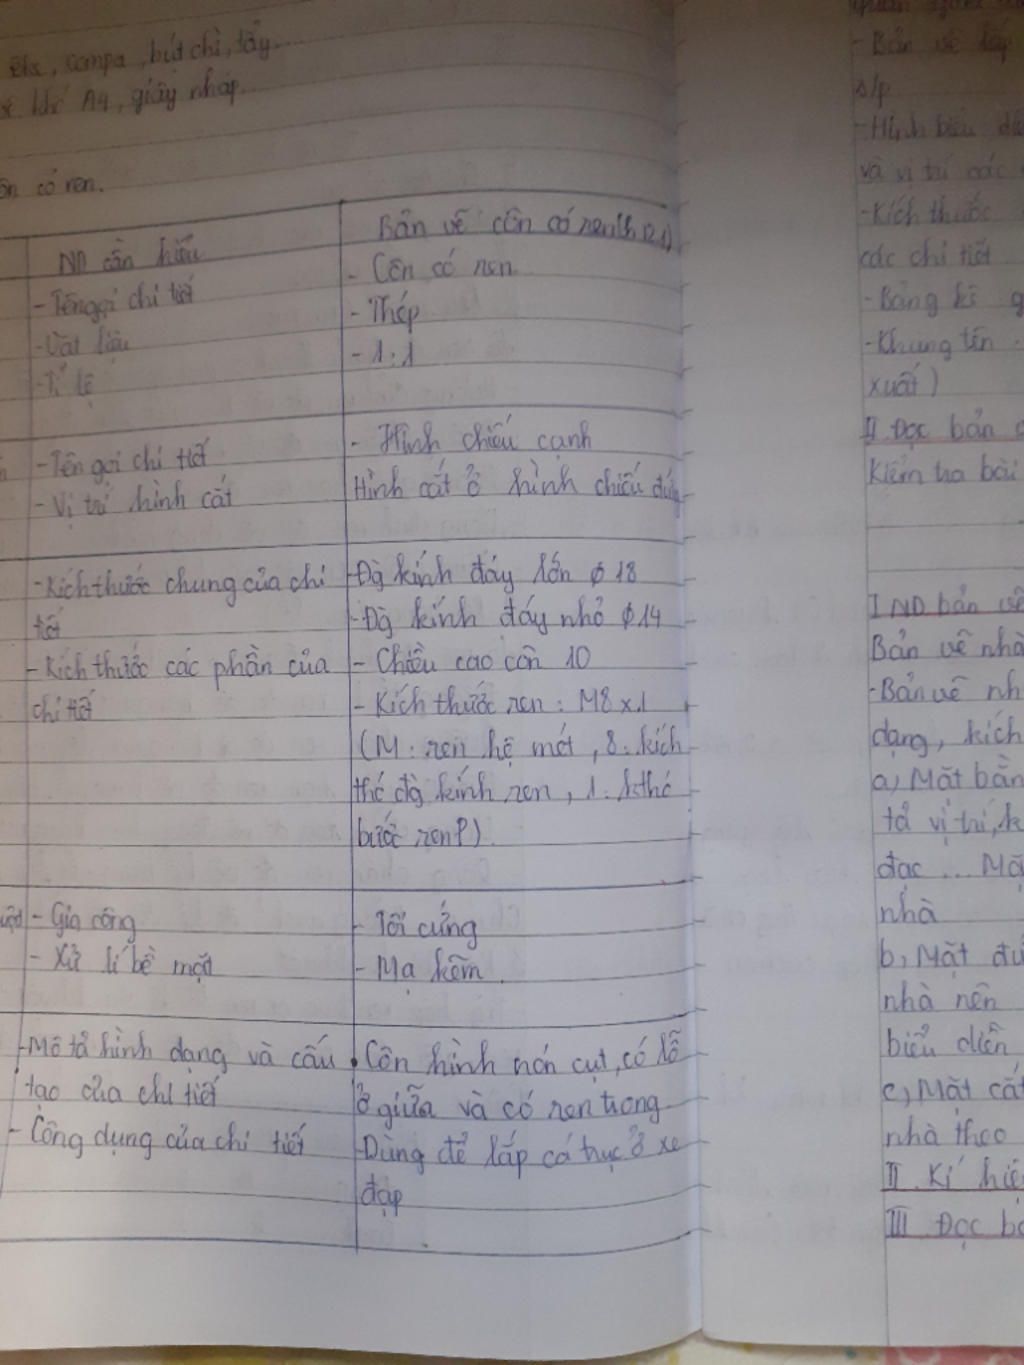 êke, compa, bút chì, tẩy...
khổ A4, giấy nháp...
côn có ren.
ND cần hiểu
Bản vẽ côn có ren(h12.1)
- Tên gọi chi tiết
- Côn có ren
- Vật liệu
- Thép
- Tỉ lệ
- 1:1
- Tên gọi chi tiết
- Hình chiếu cạnh
- Vị trí hình cắt
Hình cắt ở hình chiếu đứng
- Kích thước chung của chi
tiết
- Đg kính đáy lớn ϕ 18
- Đg kính đáy nhỏ ϕ14
- Kích thước các phần của
chi tiết
- Chiều cao côn 10
- Kích thước ren: M8x1
(M: ren hệ mét, 8: kích
thć đg kính ren, 1: kthć
bước renP).
- Gia công
- Tôi cứng
- Xử lí bề mặt
- Mạ kẽm
- Mô tả hình dạng và cấu
tạo của chi tiết
. Côn hình nón cụt, có lỗ
ở giữa và có ren trong
- Công dụng của chi tiết
- Dùng để lắp cá trục ở xe
đạp
- Bản vẽ lắp
s/p
- Hình biểu diễ
và vị trí các
- Kích thước
các chi tiết
- Bảng kê g
- Khung tên
xuất)
II. Đọc bản
Kiểm tra bài
I ND bản vẽ
Bản vẽ nhà
- Bản vẽ nh
dạng, kích
a, Mặt bằn
tả vị trí, k
đạc ... Mặ
nhà
b, Mặt đứ
nhà nên
biểu diễn
c, Mặt cắt
nhà theo
II. Kí hiệ
III. Đọc bả